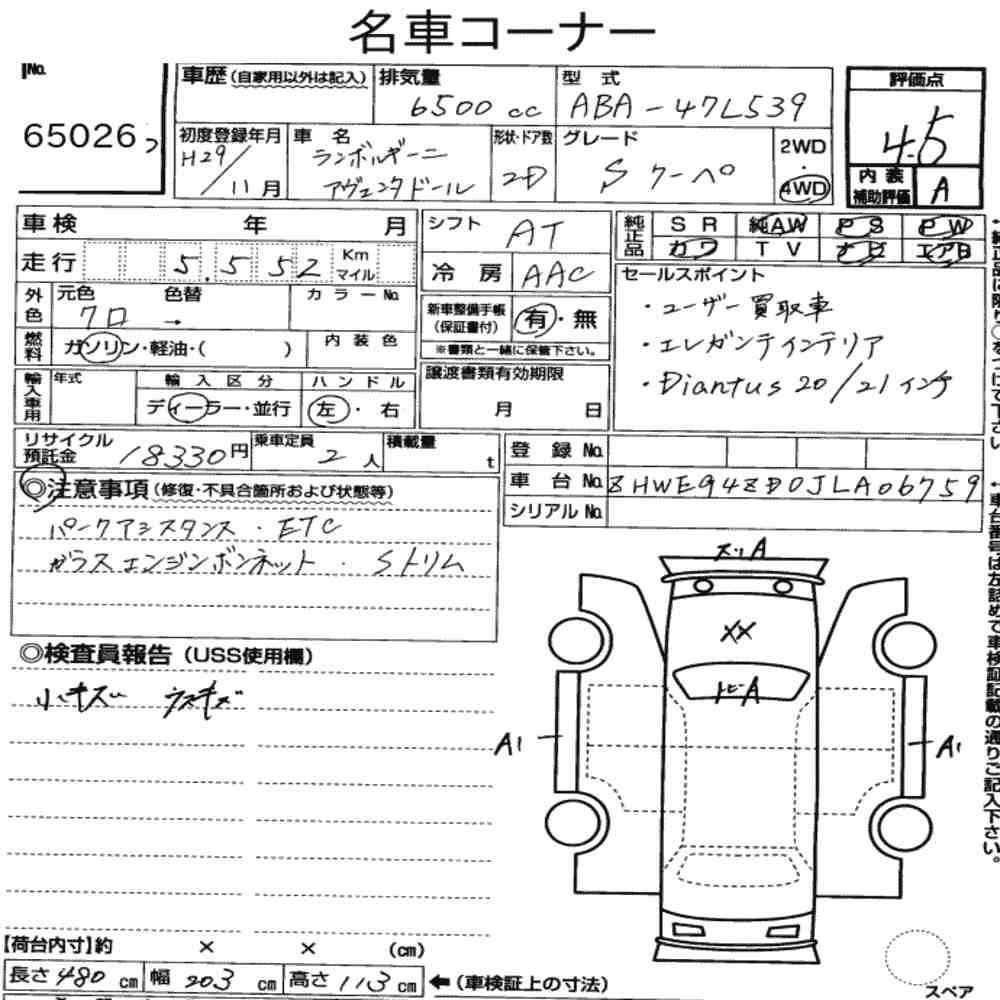 名車コーナー
No.
65026
車歴(自家用以外は記入) 排気量 6500 cc 型式 ABA-47L539
初度登録年月 H29/11月 車名 ランボルギーニ アヴェンタドール 形状・ドア数 2D グレード S クーペ 2WD・4WD
評価点 4.5
内装補助評価 A
車検 年 月
走行 5,552 Km マイル
外色 元色 クロ 色替 → カラーNo.
燃料 ガソリン・軽油・( ) 内装色
輸入車用 年式 輸入区分 ディーラー・並行 ハンドル 左・右
シフト AT
冷房 AAC
新車整備手帳(保証書付) 有・無
※書類と一緒に保管下さい。
譲渡書類有効期限 月 日
純正品 SR 純AW PS PW
カワ TV ナビ エアB
セールスポイント
・ユーザー買取車
・エレガンテインテリア
・Diantus 20/21インチ
リサイクル預託金 18330円 乗車定員 2人 積載量 t
登録No.
車台No. ZHWEG4ZD0JLA06759
シリアルNo.
◎注意事項(修復・不具合箇所および状態等)
パークアシスタンス・ETC
ガラスエンジンボンネット・Sトリム
◎検査員報告(USS使用欄)
小キズ ウスキズ
スリA
XX
トビーA
A1
A1
【荷台内寸】約 × × (cm)
長さ 480 cm 幅 203 cm 高さ 113 cm ←(車検証上の寸法)
スペア